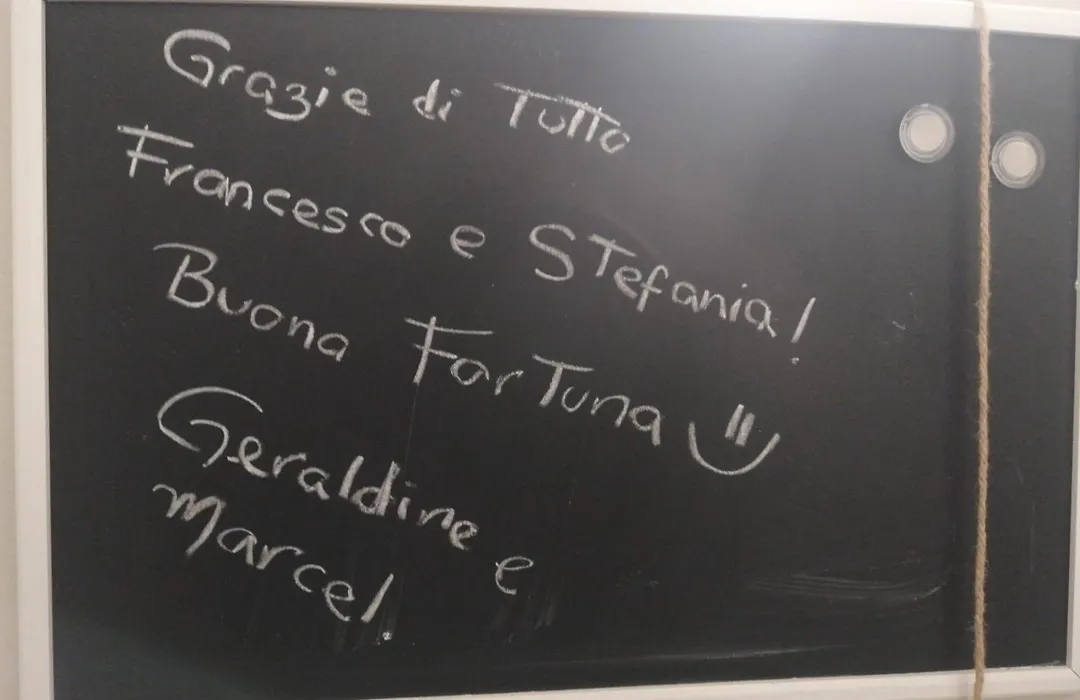 Grazie di Tutto
Francesco e Stefania!
Buona Fortuna
Geraldine e
Marcel